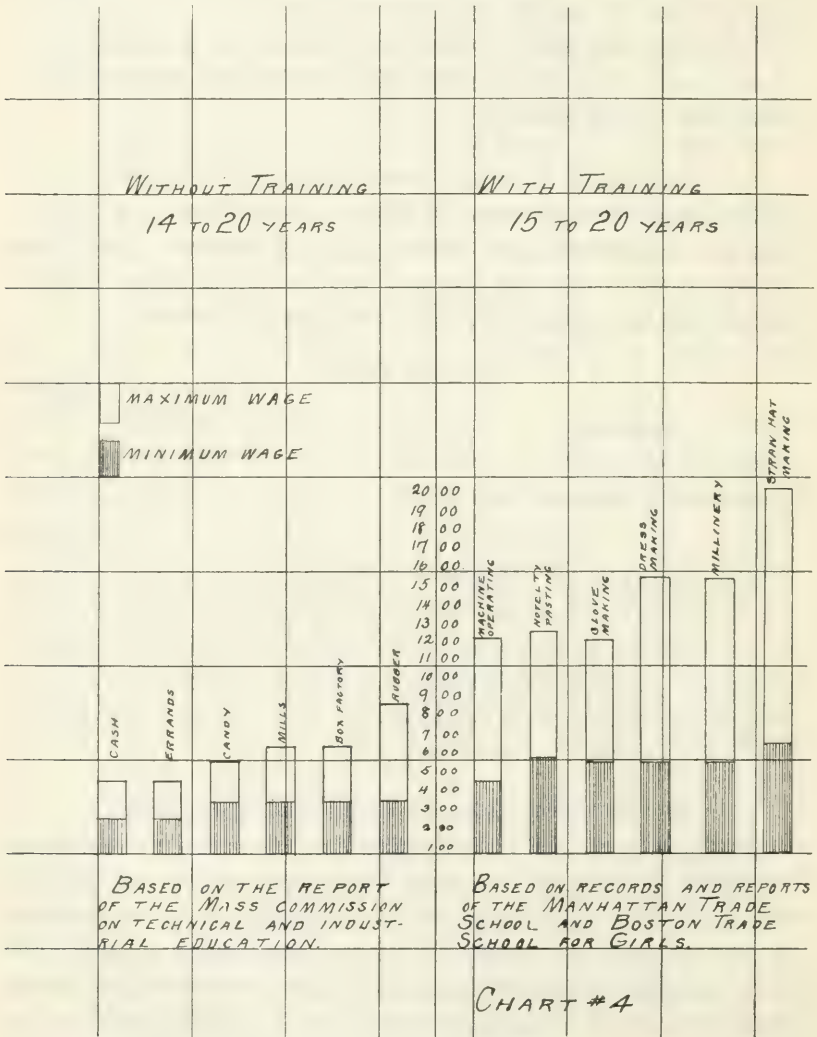 WITHOUT TRAINING
14 TO 20 YEARS
WITH TRAINING
15 TO 20 YEARS
MAXIMUM WAGE
MINIMUM WAGE
CASH
ERRANDS
CANDY
MILLS
BOX FACTORY
RUBBER
20 00
19 00
18 00
17 00
16 00
15 00
14 00
13 00
12 00
11 00
10 00
9 00
8 00
7 00
6 00
5 00
4 00
3 00
2 00
1 00
MACHINE
OPERATING
NOVELTY
PASTING
GLOVE
MAKING
DRESS
MAKING
MILLINERY
STRAW HAT
MAKING
BASED ON THE REPORT
OF THE MASS COMMISSION
ON TECHNICAL AND INDUST-
RIAL EDUCATION.
BASED ON RECORDS AND REPORTS
OF THE MANHATTAN TRADE
SCHOOL AND BOSTON TRADE
SCHOOL FOR GIRLS.
CHART #4